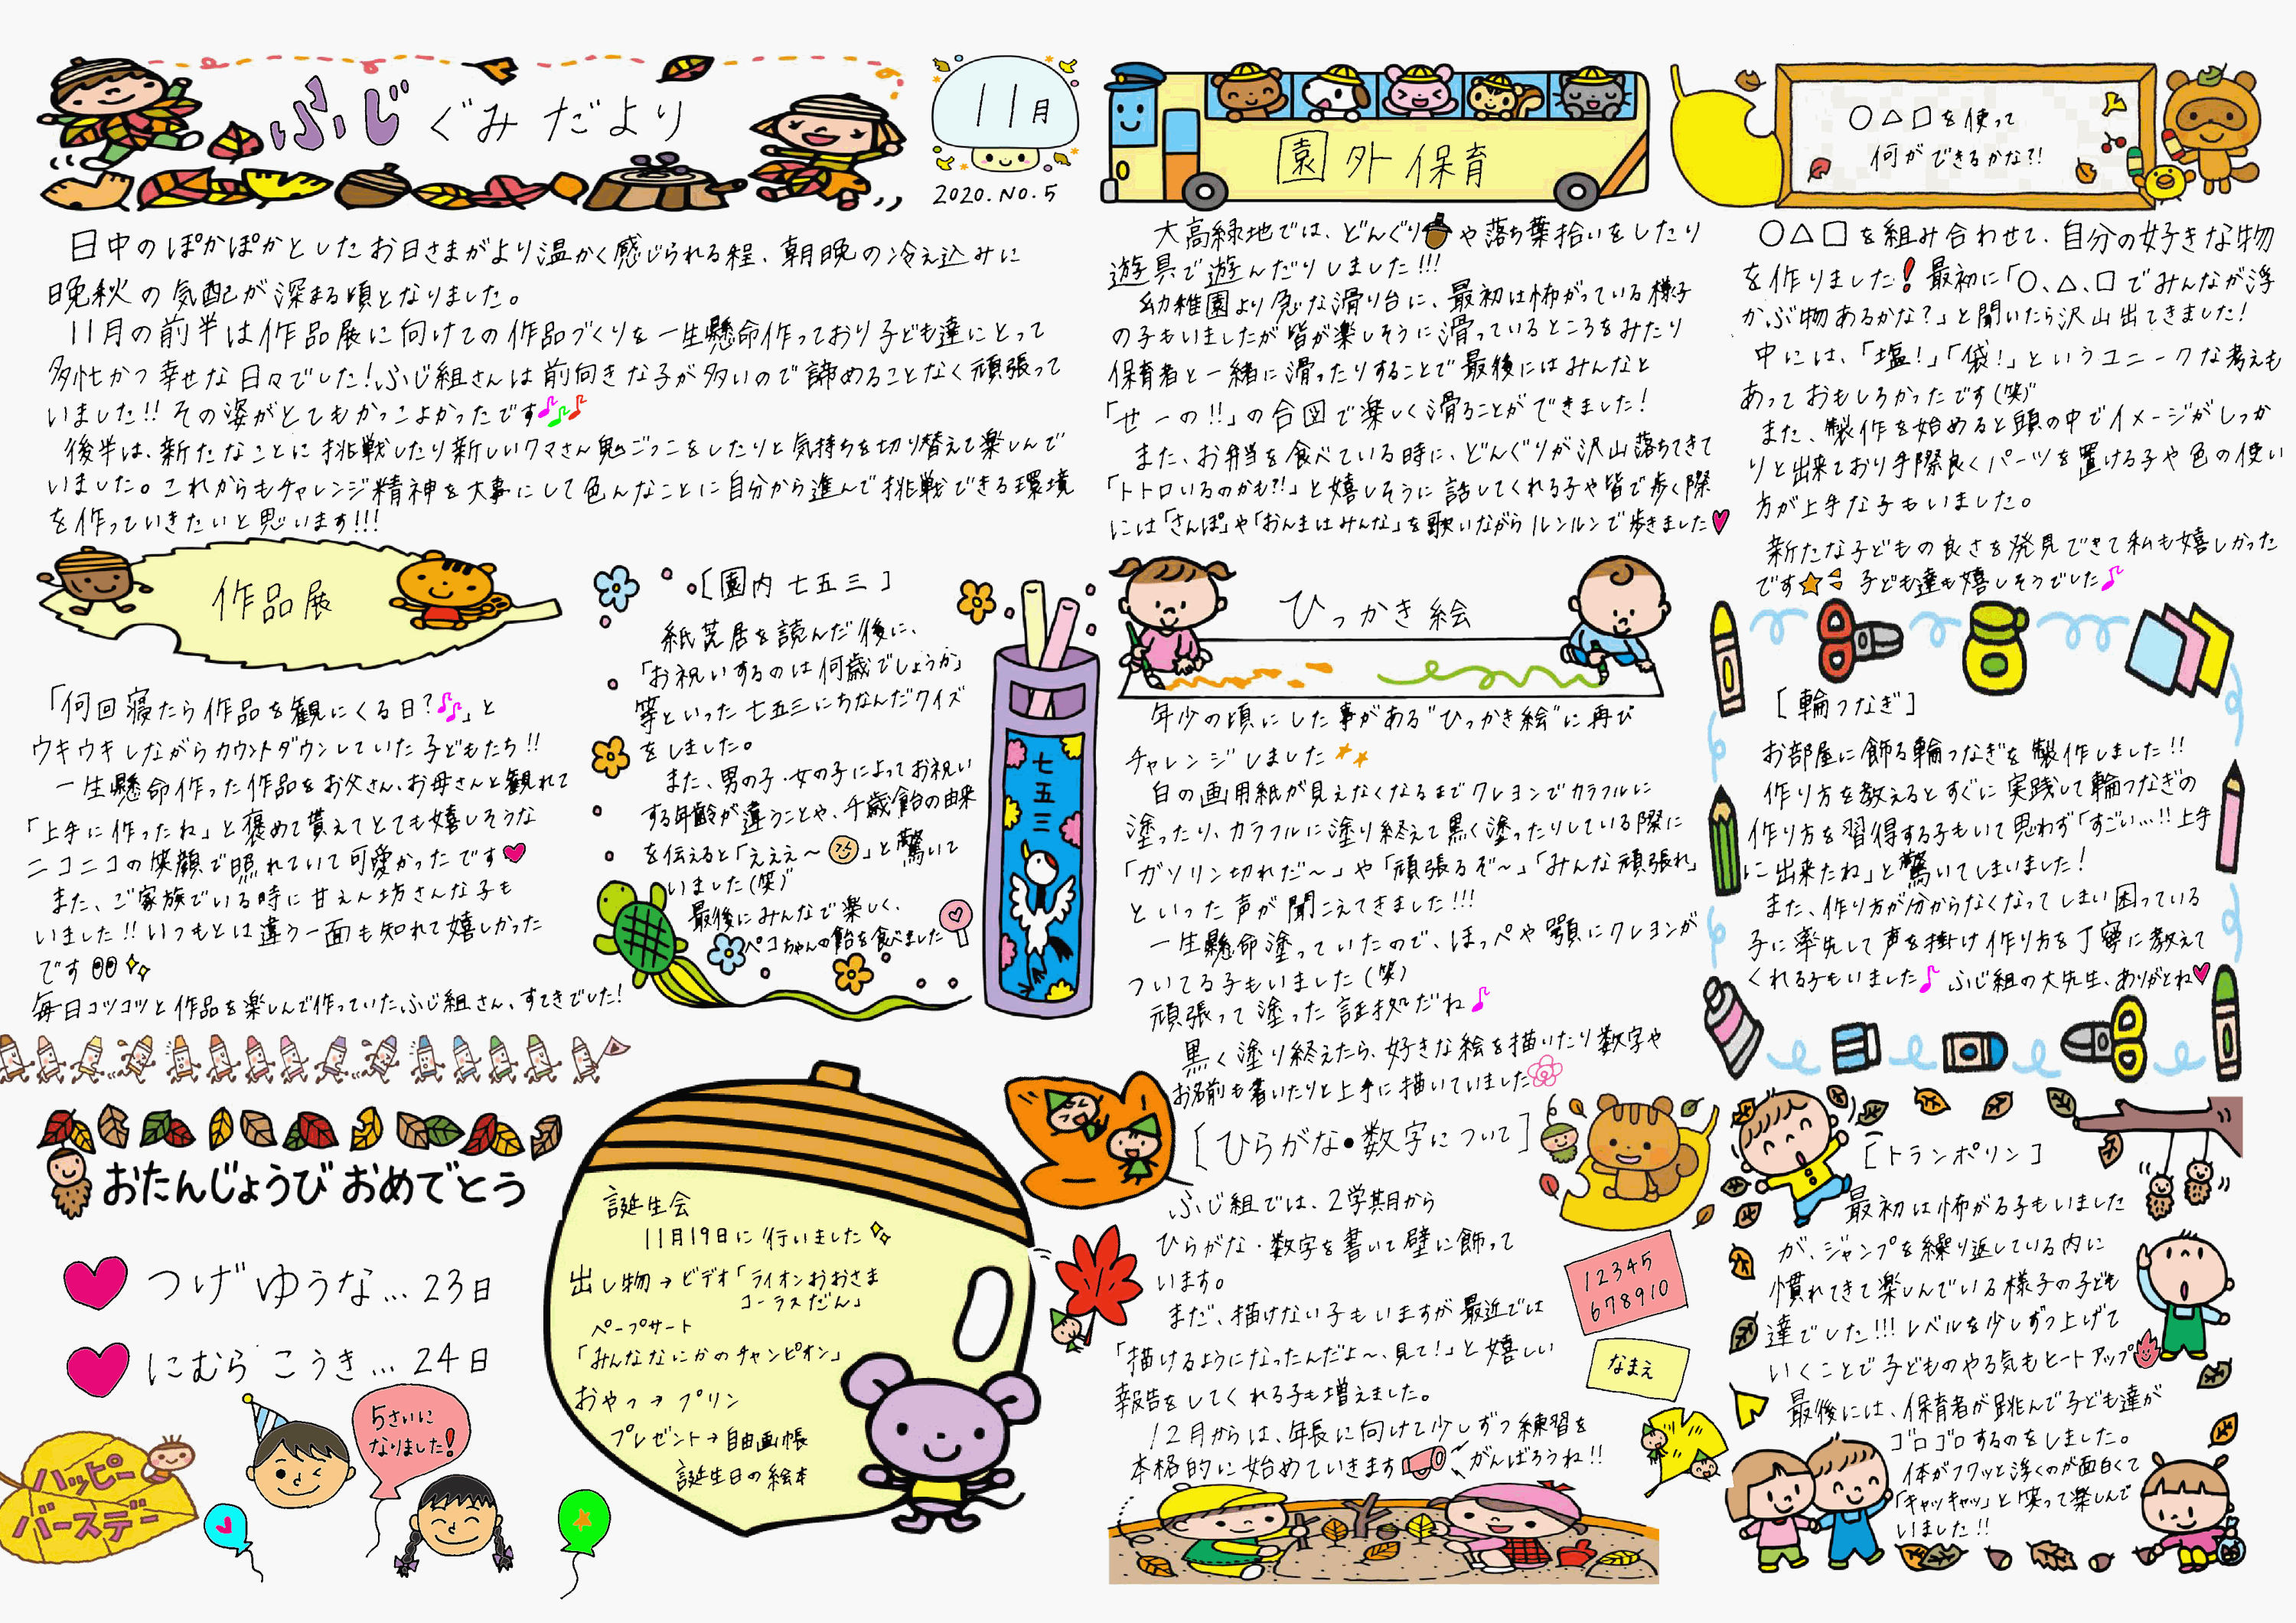 ふじぐみだより
11月
2020.NO.5
日中のぽかぽかとしたお日さまがより温かく感じられる程、朝晩の冷え込みに
晩秋の気配が深まる頃となりました。
11月の前半は作品展に向けての作品づくりを一生懸命作っており子ども達にとって
多忙かつ幸せな日々でした!ふじ組さんは前向きな子が多いので諦めることなく頑張って
いました!!その姿がとてもかっこよかったです
後半は、新たなことに挑戦したり新しいクマさん鬼ごっこをしたりと気持ちを切り替えて楽しんで
いました。これからもチャレンジ精神を大事にして色んなことに自分から進んで挑戦できる環境
を作っていきたいと思います!!!
作品展
「何回寝たら作品を観にくる日?」と
ウキウキしながらカウントダウンしていた子どもたち!!
一生懸命作った作品をお父さん、お母さんと観れて
「上手に作ったね」と褒めて貰えてとても嬉しそうな
ニコニコの笑顔で照れていて可愛かったです
また、ご家族でいる時に甘えん坊さんな子も
いました!!いつもとは違う一面も知れて嬉しかった
です
毎日コツコツと作品を楽しんで作っていたふじ組さん、すてきでした!
[園内七五三]
紙芝居を読んだ後に、
「お祝いするのは何歳でしょうか」
等といった七五三にちなんだクイズ
をしました。
また、男の子・女の子によってお祝い
する年齢が違うことや、千歳飴の由来
を伝えると「えええ〜」と驚いて
いました(笑)
最後にみんなで楽しく、
ペコちゃんの飴を食べました
七五三
おたんじょうび おめでとう
つげ ゆうな…23日
にむら こうき…24日
5さいに
なりました!
ハッピー
バースデー
誕生会
11月19日に行いました
出し物→ビデオ「ライオンおおさま
コーラスだん」
ペープサート
「みんななにかのチャンピオン」
おやつ→プリン
プレゼント→自由画帳
誕生日の絵本
園外保育
大高緑地では、どんぐりや落ち葉拾いをしたり
遊具で遊んだりしました!!!
幼稚園より急な滑り台に、最初は怖がっている様子
の子もいましたが皆が楽しそうに滑っているところをみたり
保育者と一緒に滑ったりすることで最後にはみんなと
「せーの!!」の合図で楽しく滑ることができました!
また、お弁当を食べている時に、どんぐりが沢山落ちてきて
「トトロいるのかも?!」と嬉しそうに話してくれる子や皆で歩く際
には「さんぽ」や「おんまはみんな」を歌いながらルンルンで歩きました
ひっかき絵
年少の頃にした事がある"ひっかき絵"に再び
チャレンジしました
白の画用紙が見えなくなるまでクレヨンでカラフルに
塗ったり、カラフルに塗り終えて黒く塗ったりしている際に
「ガソリン切れだ〜」や「頑張るぞ〜」「みんな頑張れ」
といった声が聞こえてきました!!!
一生懸命塗っていたので、ほっぺや顎にクレヨンが
ついてる子もいました(笑)
頑張って塗った証拠だね
黒く塗り終えたら、好きな絵を描いたり数字や
お名前も書いたりと上手に描いていました
[ひらがな・数字について]
ふじ組では、2学期から
ひらがな・数字を書いて壁に飾って
います。
まだ、描けない子もいますが最近では
「描けるようになったんだよ〜、見て!」と嬉しい
報告をしてくれる子も増えました。
12月からは、年長に向けて少しずつ練習を
本格的に始めていきます がんばろうね!!
12345
678910
なまえ
○△□を使って
何ができるかな?!
○△□を組み合わせて、自分の好きな物
を作りました!最初に「○、△、□でみんなが浮
かぶ物あるかな?」と聞いたら沢山出てきました!
中には、「塩!」「袋!」というユニークな考えも
あっておもしろかったです(笑)
また、製作を始めると頭の中でイメージがしっか
りと出来ており手際良くパーツを置ける子や色の使い
方が上手な子もいました。
新たな子どもの良さを発見できて私も嬉しかった
です 子ども達も嬉しそうでした
[輪つなぎ]
お部屋に飾る輪つなぎを製作しました!!
作り方を教えるとすぐに実践して輪つなぎの
作り方を習得する子もいて思わず「すごい…!!上手
に出来たね」と驚いてしまいました!
また、作り方が分からなくなってしまい困っている
子に率先して声を掛け作り方を丁寧に教えて
くれる子もいました ふじ組の大先生、ありがとね
[トランポリン]
最初は怖がる子もいました
が、ジャンプを繰り返している内に
慣れてきて楽しんでいる様子の子ども
達でした!!!レベルを少しずつ上げて
いくことで子どものやる気もヒートアップ
最後には、保育者が跳んで子ども達が
ゴロゴロするのをしました。
体がフワッと浮くのが面白くて
「キャッキャッ」と笑って楽しんで
いました!!